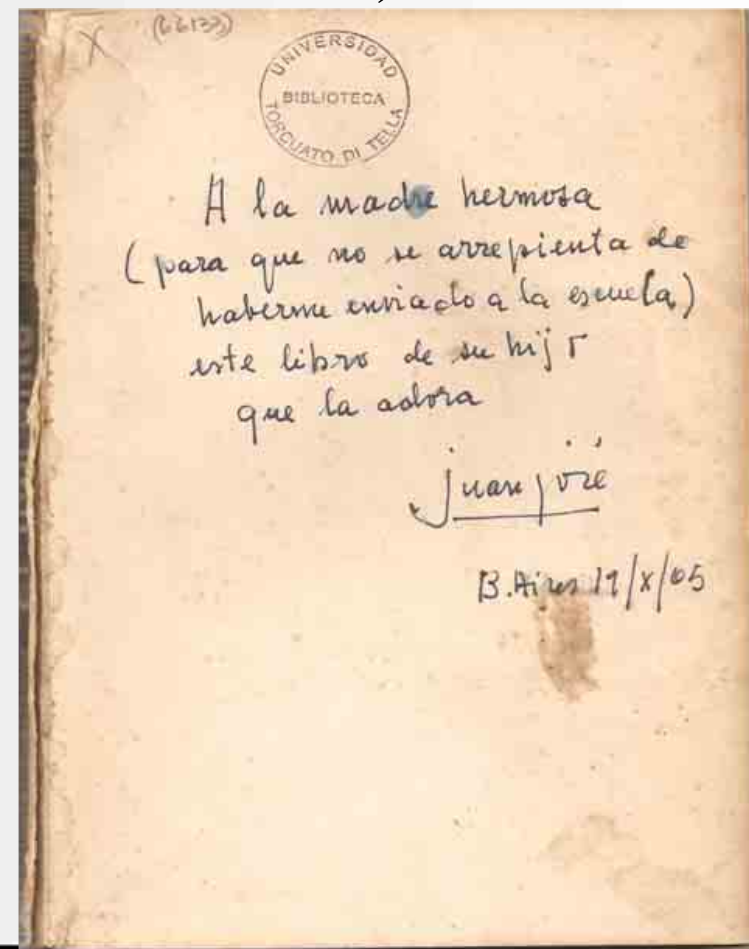 (66133)
X
UNIVERSIDAD
BIBLIOTECA
TORCUATO DI TELLA
A la madre hermosa
(para que no se arrepienta de
haberme enviado a la escuela)
este libro de su hijo
que la adora
Juan José
B. Aires 19/X/05